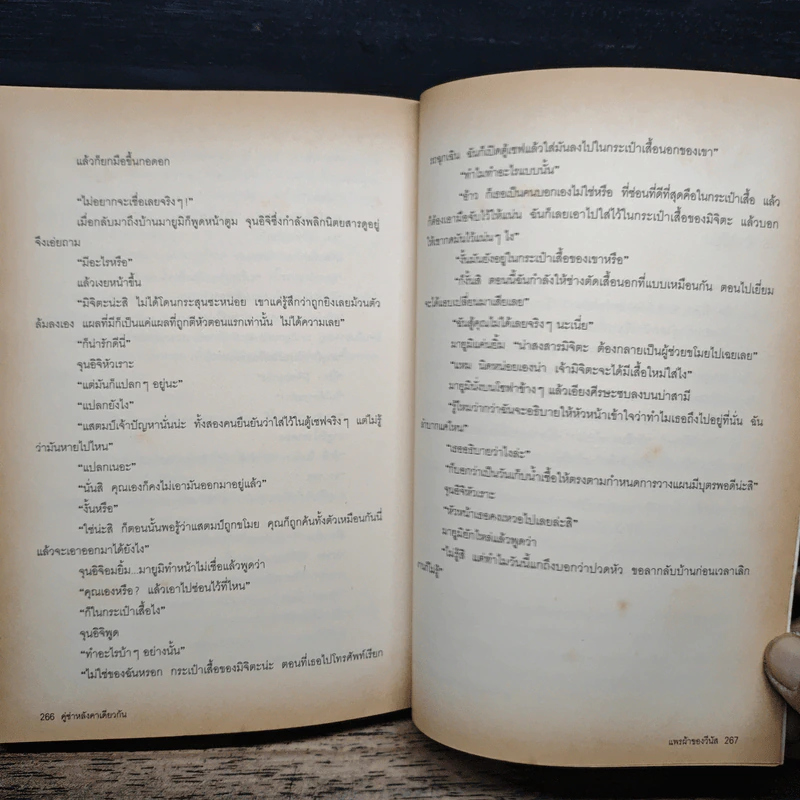 แล้วก็ยกมือขึ้นกอดอก
“ไม่อยากจะเชื่อเลยจริงๆ!”
เมื่อกลับมาถึงบ้านมายูมิก็พูดหน้าตูม จุนอิจิซึ่งกำลังพลิกนิตยสารดูอยู่
จึงเอ่ยถาม
“มีอะไรหรือ”
แล้วเงยหน้าขึ้น
“มิจิตะน่ะสิ ไม่ได้โดนกระสุนซะหน่อย เขาแค่รู้สึกว่าถูกยิงเลยม้วนตัว
ล้มลงเอง แผลที่มีก็เป็นแค่แผลที่ถูกตีหัวตอนแรกเท่านั้น ไม่ได้ความเลย”
“ก็น่ารักดีนี่”
จุนอิจิหัวเราะ
“แต่มันก็แปลกๆ อยู่นะ”
“แปลกยังไง”
“แสตมป์เจ้าปัญหานั่นน่ะ ทั้งสองคนยืนยันว่าใส่ไว้ในตู้เซฟจริงๆ แต่ไม่รู้
ว่ามันหายไปไหน”
“แปลกเนอะ”
“นั่นสิ คุณเองก็คงไม่เอามันออกมาอยู่แล้ว”
“งั้นหรือ”
“ใช่น่ะสิ ก็ตอนนั้นพอรู้ว่าแสตมป์ถูกขโมย คุณก็ถูกค้นทั้งตัวเหมือนกันนี่
แล้วจะเอาออกมาได้ยังไง”
จุนอิจิอมยิ้ม...มายูมิทำหน้าไม่เชื่อแล้วพูดว่า
“คุณเองหรือ? แล้วเอาไปซ่อนไว้ที่ไหน”
“ก็ในกระเป๋าเสื้อไง”
จุนอิจิพูด
“ทำอะไรบ้าๆ อย่างนั้น”
“ไม่ใช่ของฉันหรอก กระเป๋าเสื้อของมิจิตะน่ะ ตอนที่เธอไปโทรศัพท์เรียก
266 คู่ซ่าหลังคาเดียวกัน
รถฉุกเฉิน ฉันก็เปิดตู้เซฟแล้วใส่มันลงไปในกระเป๋าเสื้อนอกของเขา”
“ทำไมทำอะไรแบบนั้น”
“อ้าว ก็เธอเป็นคนบอกเองไม่ใช่หรือ ที่ซ่อนที่ดีที่สุดคือในกระเป๋าเสื้อ แล้ว
ก็ต้องเอามือจับไว้ให้แน่น ฉันก็เลยเอาไปใส่ไว้ในกระเป๋าเสื้อของมิจิตะ แล้วบอก
ให้เขากดมันไว้แน่นๆ ไง”
“งั้นมันยังอยู่ในกระเป๋าเสื้อของเขาหรือ”
“ก็งั้นสิ ตอนนี้ฉันกำลังให้ช่างตัดเสื้อนอกที่แบบเหมือนกัน ตอนไปเยี่ยม
จะได้แอบเปลี่ยนมาเสียเลย”
“ฉันสู้คุณไม่ได้เลยจริงๆ นะเนี่ย”
มายูมิแค่นยิ้ม “น่าสงสารมิจิตะ ต้องกลายเป็นผู้ช่วยขโมยไปเฉยเลย”
“แหม นิดหน่อยเองน่า เจ้ามิจิตะจะได้มีเสื้อใหม่ใส่ไง”
มายูมินั่งบนโซฟาข้างๆ แล้วเอียงศีรษะซบลงบนบ่าสามี
“รู้ไหมว่ากว่าฉันจะอธิบายให้หัวหน้าเข้าใจว่าทำไมเธอถึงไปอยู่ที่นั่น ฉัน
ลำบากแค่ไหน”
“เธออธิบายว่าไงล่ะ”
“ก็บอกว่าเป็นวันเก็บน้ำเชื้อให้ตรงตามกำหนดการวางแผนมีบุตรพอดีน่ะสิ”
จุนอิจิหัวเราะ
“หัวหน้าเธอคงเหวอไปเลยล่ะสิ”
มายูมิยักไหล่แล้วพูดว่า
“ไม่รู้สิ แต่ทำไมวันนี้แกถึงบอกว่าปวดหัว ขอลากลับบ้านก่อนเวลาเลิก
งานก็ไม่รู้”
แพรผ้าของวีนัส 267